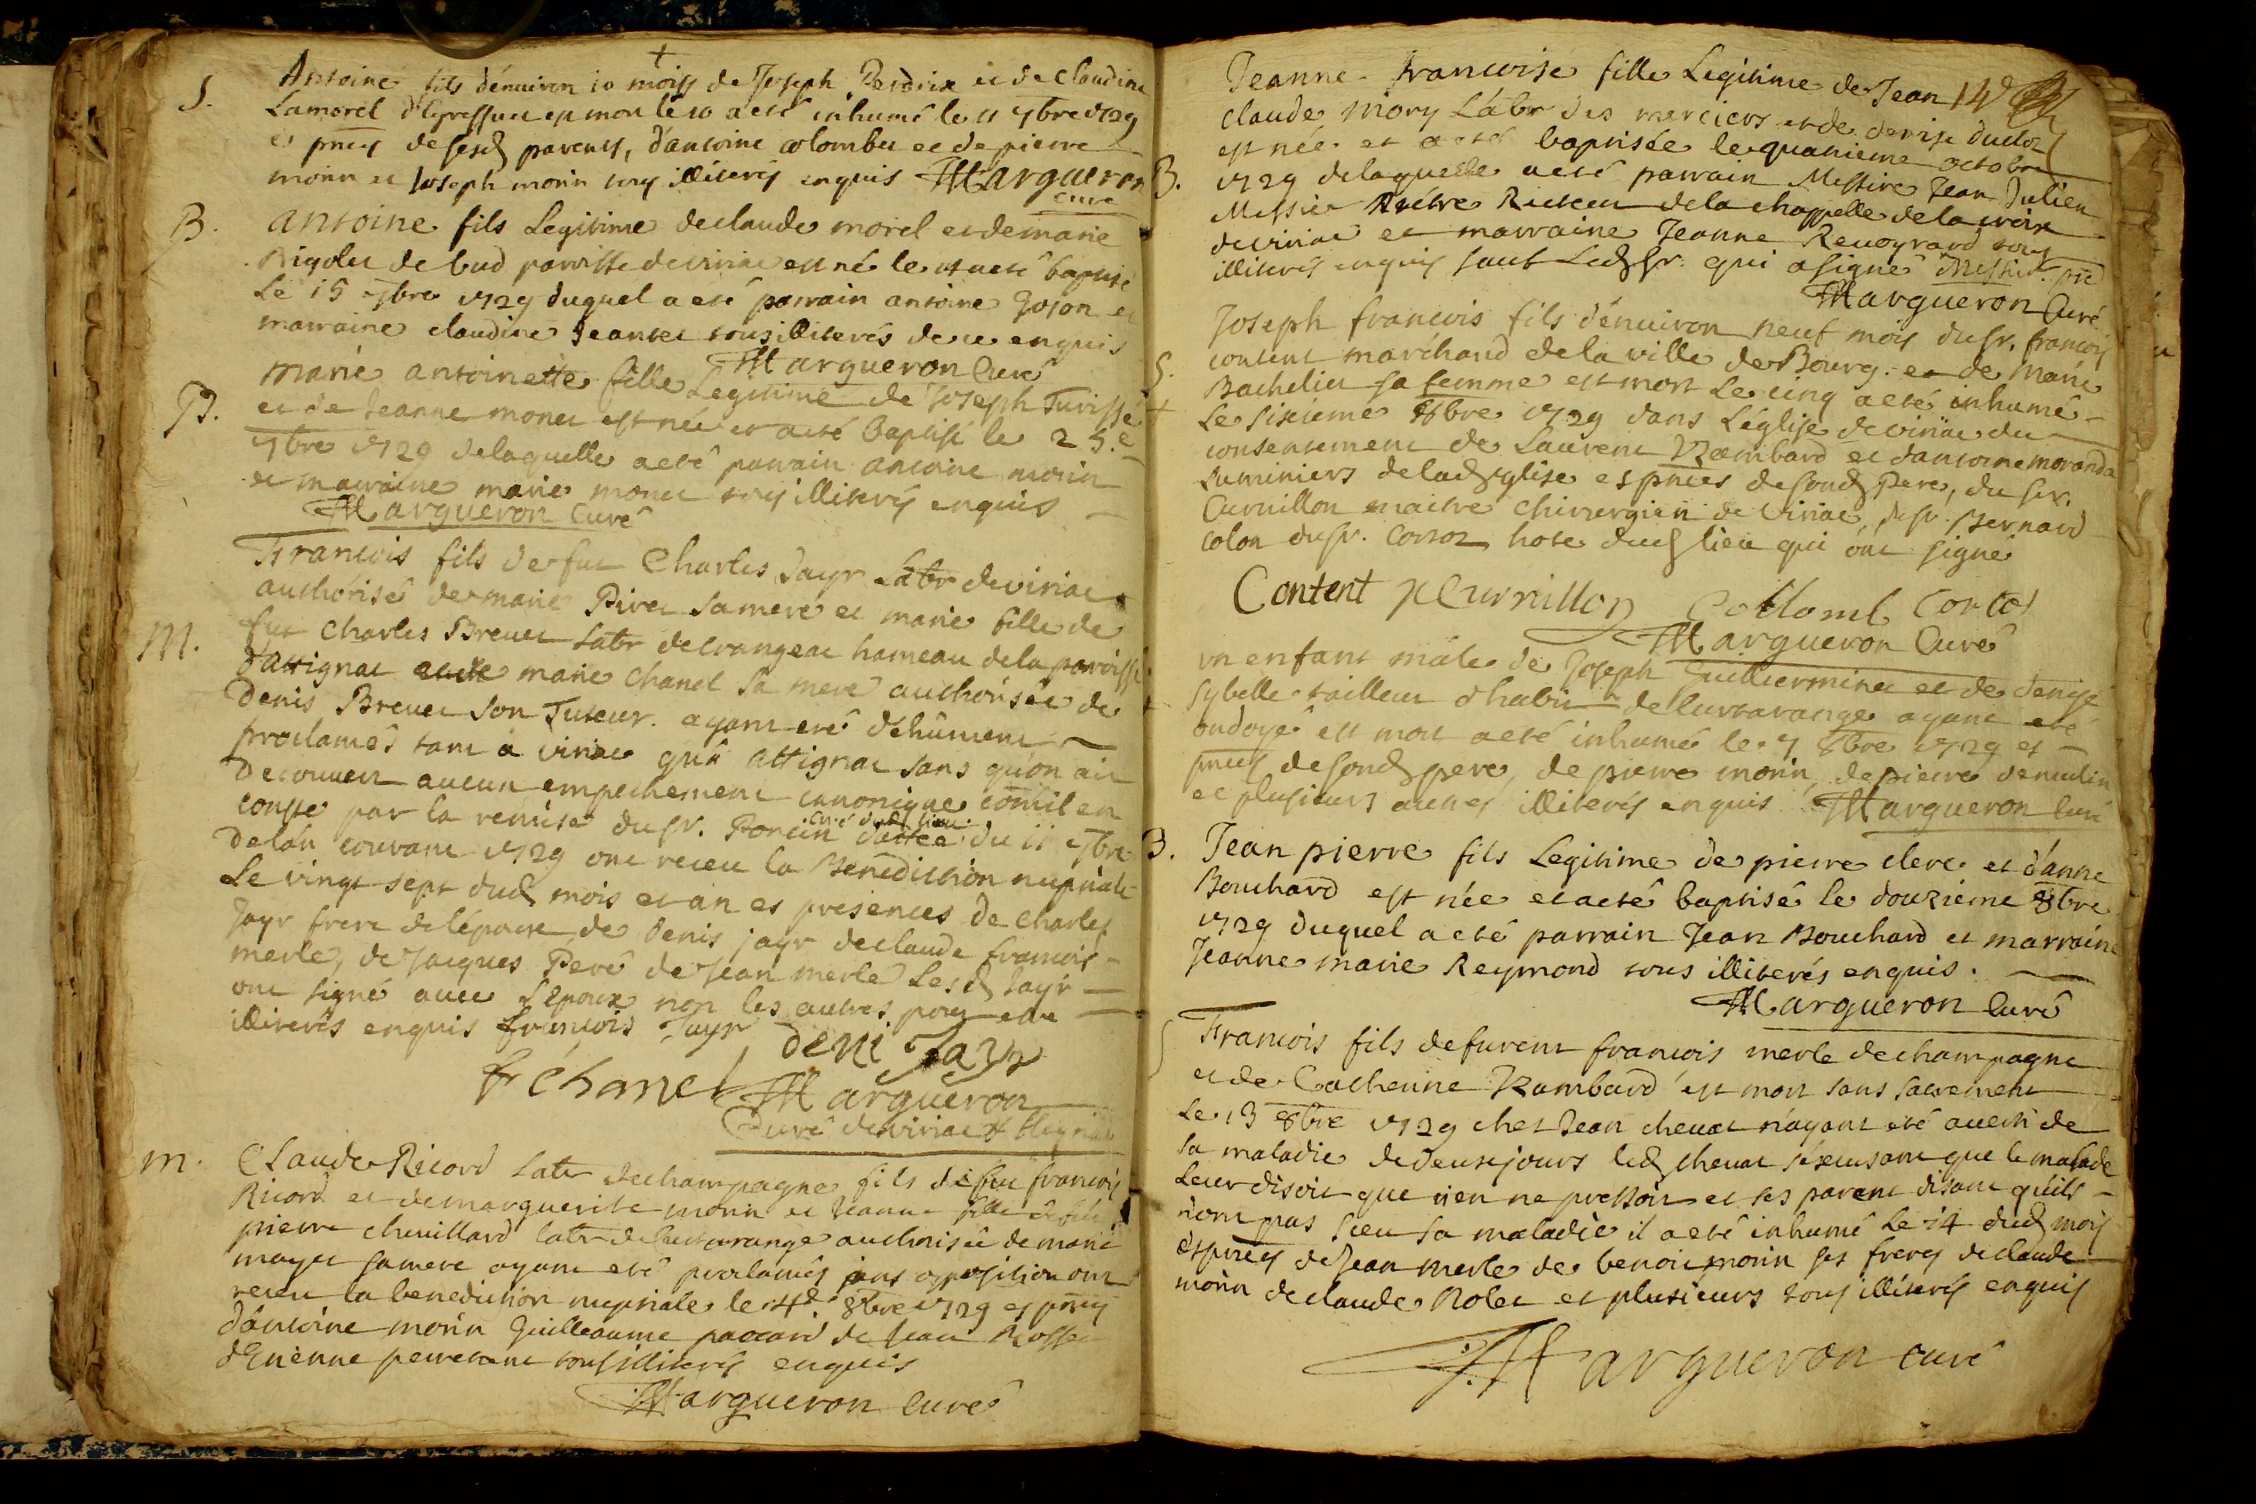 +
S. Antoine fils d'énuiron 10 mois de Joseph Perdrix et de Claudine
Lamorel est mort le 10 a eté inhumé le 11 7bre 1729
es pnces de sesd parents, d'antoine colombet et de pierre
morin et Joseph morin tous illiterés enquis Margueron
curé
B. antoine fils Legitime de claude morel et de marie
Rigolet de bud paroisse de viriat est né le et a eté baptisé
Le 15 7bre 1729 duquel a eté parrain antoine Goion et
marraine claudine Jeantet tous illiterés de ce enquis
Margueron Curé
B. Marie antoinette fille Legitime de Joseph Turissé
et de Jeanne monet est née et a eté Baptisé le 25.e
7bre 1729 de laquelle a eté parrain antoine morin
et marraine marie monet tous illiterés enquis
Margueron Curé
Francois fils de fut Charles Jayr Labr de viriat
authorisé de marie Piret sa mere et marie fille de
M. fut Charles Brevet Labr de crangeat hameau de la paroisse
d'attignat marie chanel sa mere authorisée de
Denis Brevet son Tuteur. ayant eté dehûment
proclamés tant a viriat qu'a attignat sans qu'on ait
Decouvert aucun empechement canonique comil en
conste par la remise du sr. Poncin curé dud lieu dattée du 11 7bre
De lán courant 1729 ont receu la Benediction nuptiale
Le vingt sept dud mois et an es presences de Charles
Jayr frere de lépoux de Denis jayr de claude francois
merle, de Jacques Peré de Jean merle Lesd Jayr
ont signé avec L'Epoux non les autres pour etre
illiterés enquis francois Jayr
deni Jayr
fr chanel Margueron
Curé de viriat
M. Claude Ricord Labr de champagne fils de fut francois
Ricord et de marguerite morin et Jeanne fille de fut
pierre chevillard labr de Curtarange authorisée de marie
mayet sa mere ayant eté proclamés sans opposition ont
receu la benediction nuptiale le 4e. 8bre 1729 es pnces
d'antoine morin Guilleaume paccard de Jean Rosset
d'Etienne perretant tous illiterés enquis
Margueron Curé
14e
Jeanne Francoise fille Legitime de Jean
claude mory Labr des merciers et de denise duclos
est née et a eté baptisée le quatrieme octobre
B. 1729 de laquelle a eté parrain Messire Jean Julien
Messier Prétre Recteur de la chappelle de la croix
de viriat et marraine Jeanne Revoyrard tous
illiterés enquis sauf Led sr. qui a signé Messier ptre
Margueron Curé
Joseph francois fils d'énuiron neuf mois du sr. francois
S. content marchand de la ville de Bourg et de Marie
Bachelier sa femme est mort Le cinq a eté inhumé
+ Le sixieme 8bre 1729 dans L'église de viriat du
consentement de Laurent Rambard et d'antoine morand
Luminiers de lad eglise es pnces de sond Pere, du sr.
Curnillon maitre chirurgien de viriat, du sr. Bernard
colon du sr. Cortos hote dud lieu qui ont signé
Content Curnillon Collomb Cortos
Margueron Curé
un enfant mâle de Joseph Guillerminet et de denise
+ sybelle tailleur d'habit de Curtarange ayant eté
ondoyé est mort a eté inhumé le 7 8bre 1729 es
pnces de sond pere, de pierre morin, de pierre
et plusieurs autres illiterés enquis Margueron Curé
B. Jean pierre fils Legitime de pierre clerc et d'anne
Bouchard est née et a eté baptisé le douzieme 8bre
1729 duquel a eté parrain Jean Bouchard et marraine
Jeanne marie Reymond tous illiterés enquis.
Margueron Curé
S Francois fils de furent francois merle de champagne
et de Catherine Rambard est mort sans sacrement
Le 13 8bre 1729 chez Jean chevat n'ayant eté averti de
sa maladie de deux jours led chevat s'excusant que le malade
Leur disoit que rien ne pressoit et ses parent disant qu'ils
n'ont pas sceu sa maladie il a eté inhumé Le 14 dud mois
es pnces de Jean merle de benoit morin ses freres de claude
morin de claude Rolet et plusieurs tous illiterés enquis
Margueron curé